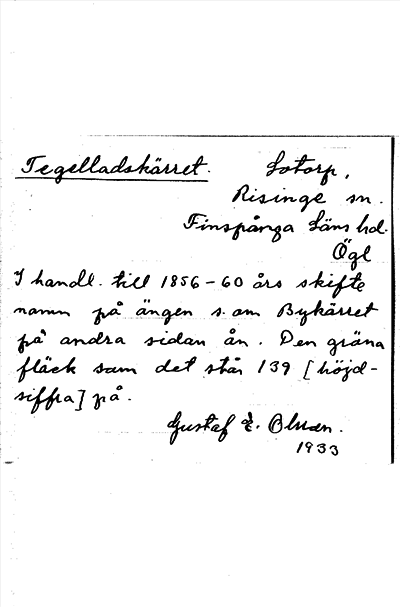 Tegelladskärret. Lotorp,
Risinge sn.
Finspånga Läns hd.
Ögl
I handl. till 1856-60 års skifte
namn på ängen s. om Bykärret
på andra sidan ån. Den gröna
fläck som det står 139 [höjd-
siffra] på.
Gustaf E. Olsson.
1933